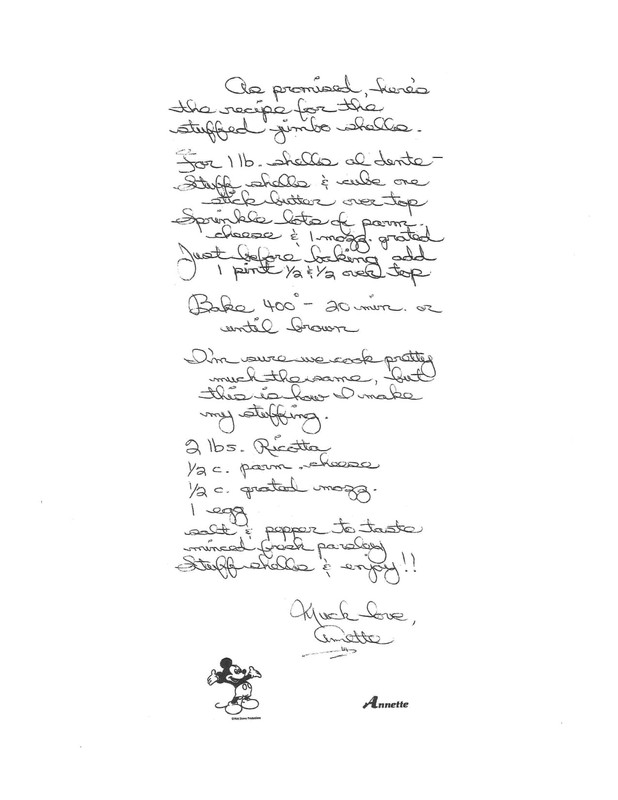 As promised, here's
the recipe for the
stuffed jimbo shells.
For 1 lb. shells al dente -
Stuff shells & cube one
stick butter over top
Sprinkle lots of parm.
cheese & 1 mozz. grated
Just before baking add
1 pint 1/2 & 1/2 over top
Bake 400° - 20 min. or
until brown
I'm sure we cook pretty
much the same, but
this is how I make
my stuffing.
2 lbs. Ricotta
1/2 c. parm. cheese
1/2 c. grated mozz.
1 egg
salt & pepper to taste
minced fresh parsley
Stuff shells & enjoy!!
Much love,
Annette
Annette